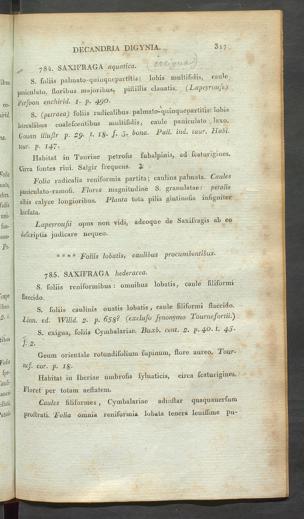 DECANDRIA DIGYNIA.
317
784. SAXIFRAGA aquatica.
S. foliis palmato-quinquepartitis: lobis multifidis, caule
paniculato, floribus majoribus, puſillis clauatis. (Lapeyrouſe)
Perſoon enchirid. 1. p. 490.
S. (petraea) foliis radicalibus palmato-quinquepartitis: lobis
coaleſcentibus multifidis, caule paniculato laxo.
Gouan illuſtr p. 29. t. 18. ſ. 3. bona. Pall. ind. taur. Habl.
taur. p. 147.
Habitat in Tauriae petroſis ſubalpinis, ad ſcaturigines.
Circa fontes riui. Salgir frequens. ♃
Folia radicalia reniformia partita; caulina palmata. Caules
paniculato-ramoſi. Flores magnitudine S. granulatae: petalis
albis calyce longioribus. Planta tota pilis glutinoſis inſigniter
hirſuta.
Lapeyrouſii opus non vidi, adeoque de Saxifragis ab eo
deſcriptis judicare nequeo.
**** Foliis lobatis, caulibus procumbentibus.
785. SAXIFRAGA hederacea.
S. foliis reniformibus: omnibus lobatis, caule filiformi
flaccido.
S. foliis caulinis ouatis lobatis, caule filiformi flaccido.
Linn. ed. Willd. 2. p. 658? (excluſo ſynonymo Tournefortii.)
S. exigua, foliis Cymbalariae. Buxb. cent. 2. p. 40. t. 45.
ſ. 2.
Geum orientale rotundifolium ſupinum, flore aureo. Tour-
neſ. cor. p. 18.
Habitat in Iberiae umbroſis ſyluaticis, circa ſcaturigines.
Floret per totam aeſtatem.
Caules filiformes, Cymbalariae adinſtar quaquauerſum
proſtrati. Folia omnia reniformia lobata tenera leuiſſime pu-